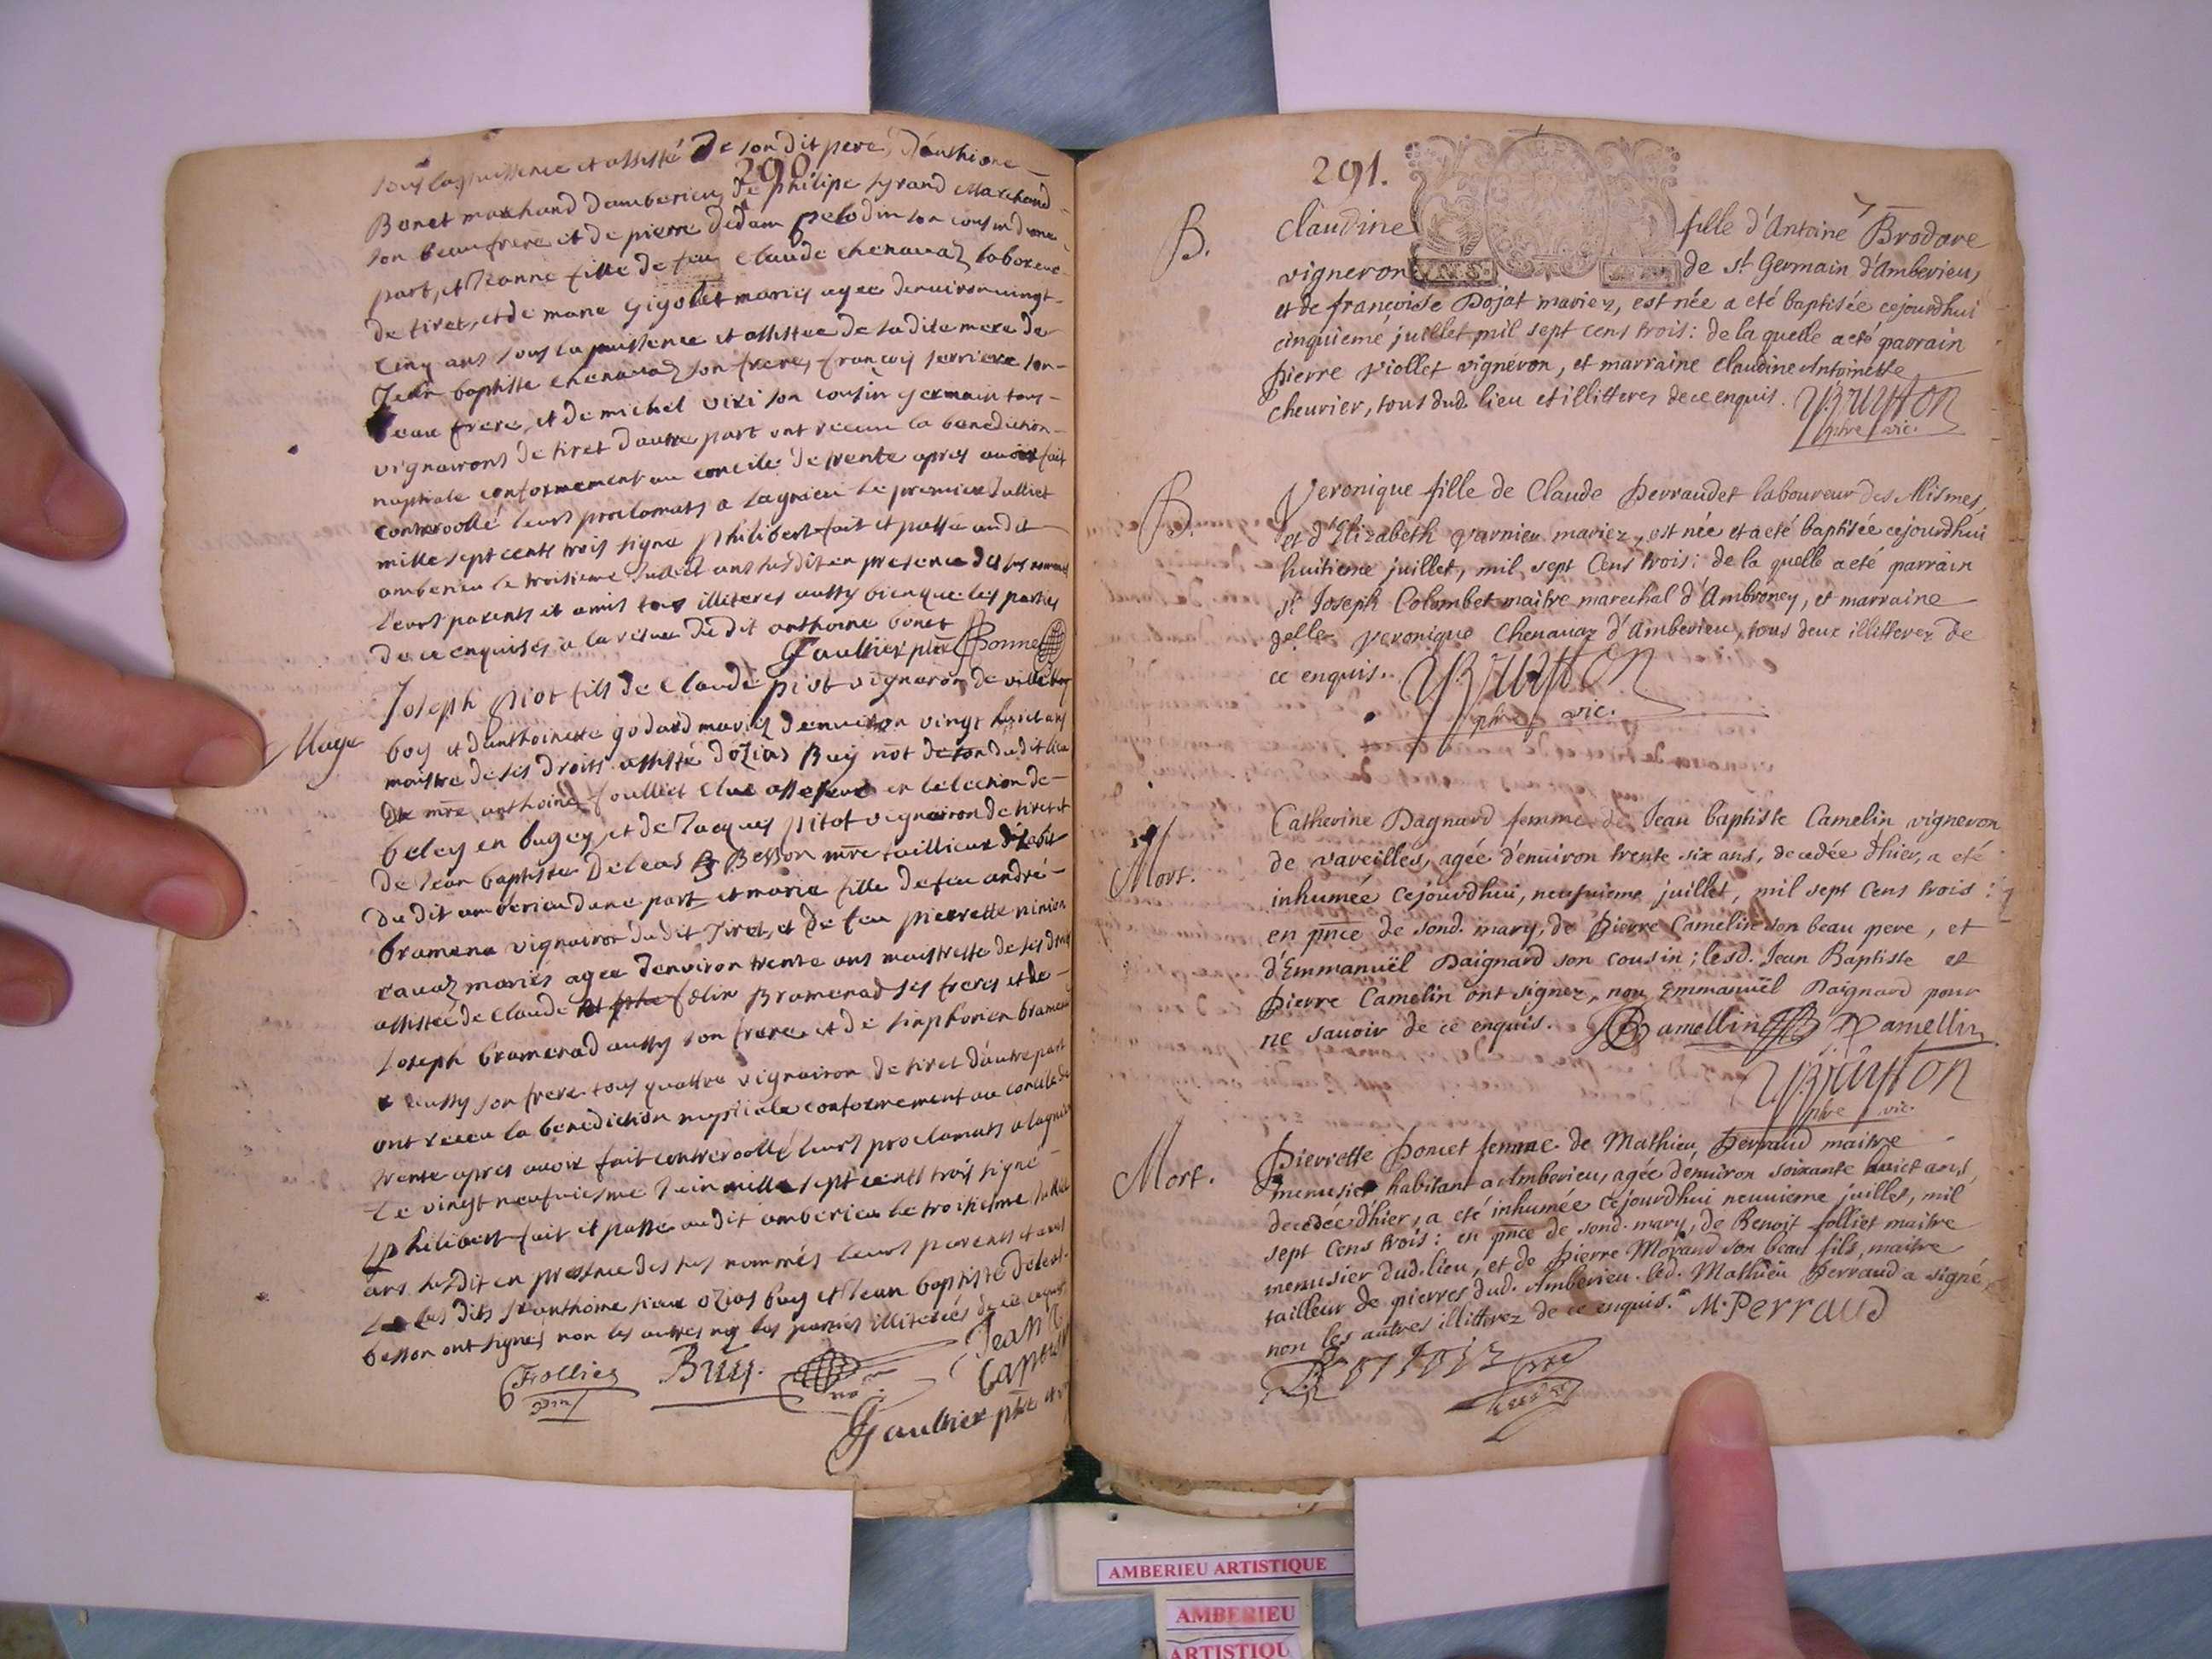 290.
sous la puissence et assisté De son dit pere, D'anthione
Bonet marchand d'amberieu, de philipe syrand Marchand
son beau frere et de pierre dedam pelodin son cousin d'une
part, et Jeanne fille de feu Claude chenavaz laboreur
de tiret, et de marie Gigolet mariés agee denviron vingt
cinq ans sous la puissence et assistee de sa dite mere de
Jean baptiste chenavaz son frere, françois serriere son
beau frere, et de michel vixi son cousin germain tous
vignairons de tiret d'autre part ont receu la benediction
nuptiale conformement au concile de trente apres avoir fait
contreroollé leurs proclamats a lagnieu le premier Julliet
mille sept cents trois signe philibert fait et passé audit
amberieu le troisieme Julliet ans susdit en presence des sus nommes
leurs parents et amis tous illiteres aussy bien que les parties
de ce enquises, a la reserve du dit anthoine bonet
Gaulthier ptre Bonnet
Mage
Joseph piot fils de Claude piot vignaron de ville
boy et d'anthoinette godard mariez denviron vingt huict ans
maistre de ses droits assisté d'ozias Buy not dudit lieu
de mre anthoine foulliet Elue assesseur en lelection de
beley en bugey, et de Jacques pitot vignairon de tiret et
de Jean baptiste Deleas Besson mre taillieur d'habit
du dit amberieu d'une part et marie fille de feu andré
bramena vignairon du dit Tiret, et de feu pierrette ninion
ravaz mariés agee denviron trente ans maistresse de ses droits
assistée de Claude et felix Bramenad ses freres et de
Joseph bramenad aussy son frere et de sinphorien bramenad
aussy son frere tous quattre vignairon de tiret d'autre part
ont receu la benediction nuptiale conformement au concile de
trente apres avoir fait contreroollé leurs proclamats a lagnieu
le vingt neufviesme Juin mille sept cents trois signé
philibert fait et passé audit amberieu le troisiesme Julliet
ans susdit en presence des sus nommés leurs parents et amis
les dits sr anthoine sieur ozias buy et Jean baptiste deleas
besson ont signés, non les autres ny les parties illiterées de ce enquis
Frolliet Buy. Jean
Baptiste
Gaulthier ptre
291.
B.
Claudine fille d'Antoine Brodare
vigneron de st Germain d'Amberieu,
et de françoise Dojat mariez, est née a eté baptisée cejourdhui
cinquiemé juillet mil sept cens trois: de la quelle a eté parrain
Pierre Viollet vigneron, et marraine Claudine Antoinette
Cheurier, tous dud. lieu et illitteres de ce enquis. Bruyston
ptre vic.
B.
Veronique fille de Claude Perraudet laboureur des Alismes,
et d'Elizabeth Varnieu mariez, est née et a eté baptisée cejourdhui
huitieme juillet, mil sept Cens trois: de la quelle a eté parrain
sr Joseph Colombet maitre marechal d'Ambroney, et marraine
delle Veronique Chenavaz d'Amberieu, tous deux illitterez de
ce enquis. Bruyston
ptre vic.
Mort.
Catherine Dagnard femme de Jean baptiste Camelin vigneron
de Vareilles, agée d'environ trente six ans, decedée d'hier, a eté
inhumée cejourdhui, neufuieme juillet, mil sept Cens trois:
en pnce de sond. mary, de Pierre Camelin son beau pere, et
d'Emmanuël Daignard son cousin; lesd. Jean Baptiste et
Pierre Camelin ont signez, non Emmanuël Daignard pour
ne savoir de ce enquis. JB Camellin P Camellin
Bruyston
ptre vic.
Mort.
Pierrette Poncet femme de Mathieu Perraud maitre
menusier habitant a Amberieu, agée d'environ soixante huict ans,
decedée d'hier, a eté inhumée cejourdhui neuuieme juillet, mil
sept Cens trois: en pnce de sond. mary, de Benoit folliet maitre
menusier dud. lieu, et de Pierre Morand son beau fils, maitre
tailleur de pierres dud. Amberieu. led. Mathieu Perraud a signé,
non les autres illitterez de ce enquis. M. Perraud
AMBERIEU ARTISTIQUE
AMBERIEU
ARTISTIQU